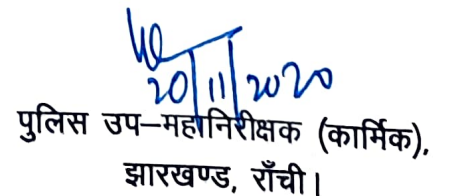 20/11/2020
पुलिस उप–महानिरीक्षक (कार्मिक),
झारखण्ड, राँची।